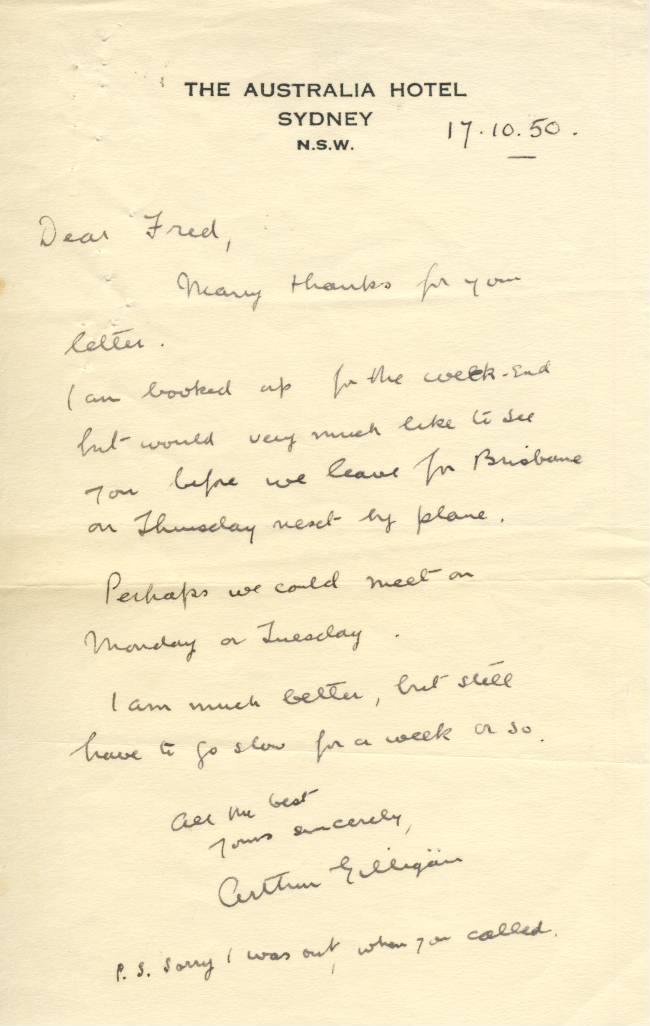 THE AUSTRALIA HOTEL
SYDNEY
N.S.W.
17.10.50.
Dear Fred,
Many thanks for your
letter.
I am booked up for the week-end
but would very much like to see
you before we leave for Brisbane
on Thursday next by plane.
Perhaps we could meet on
Monday or Tuesday.
I am much better, but still
have to go slow for a week or so.
All the best
Yours sincerely,
Arthur Gilligan
P.S. Sorry I was out, when you called.